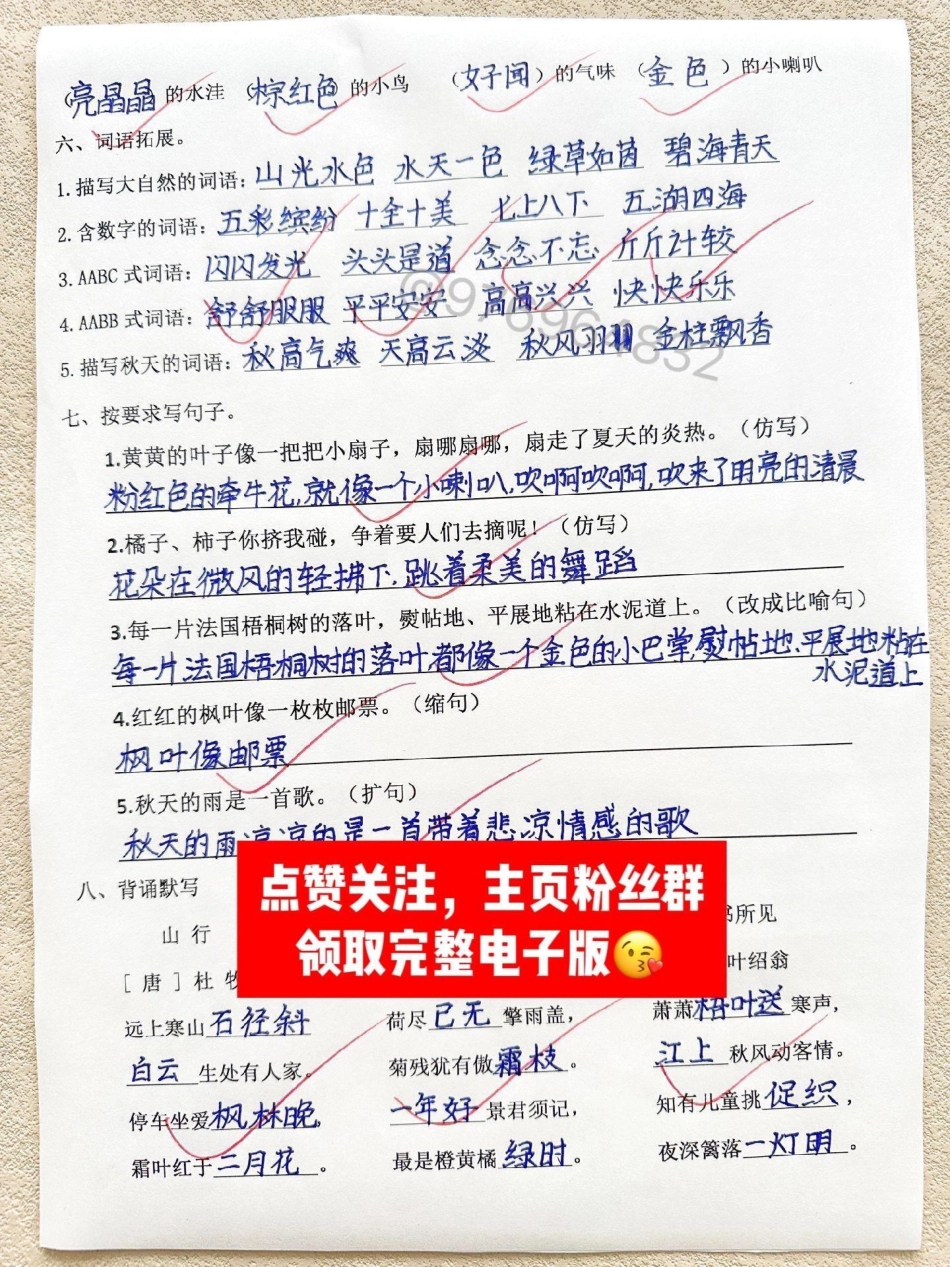 （亮晶晶）的水洼 （棕红色）的小鸟 （好闻）的气味 （金色）的小喇叭
六、词语拓展。
1.描写大自然的词语：山光水色 水天一色 绿草如茵 碧海青天
2.含数字的词语：五彩缤纷 十全十美 七上八下 五湖四海
3.AABC式词语：闪闪发光 头头是道 念念不忘 斤斤计较
4.AABB式词语：舒舒服服 平平安安 高高兴兴 快快乐乐
5.描写秋天的词语：秋高气爽 天高云淡 秋风习习 金桂飘香
@976964832
七、按要求写句子。
1.黄黄的叶子像一把把小扇子，扇哪扇哪，扇走了夏天的炎热。（仿写）
粉红色的牵牛花，就像一个小喇叭，吹啊吹啊，吹来了明亮的清晨
2.橘子、柿子你挤我碰，争着要人们去摘呢！（仿写）
花朵在微风的轻拂下，跳着柔美的舞蹈
3.每一片法国梧桐树的落叶，熨帖地、平展地粘在水泥道上。（改成比喻句）
每一片法国梧桐树的落叶，都像一个金色的小巴掌，熨帖地、平展地粘在
水泥道上
4.红红的枫叶像一枚枚邮票。（缩句）
枫叶像邮票
5.秋天的雨是一首歌。（扩句）
秋天的雨凉凉的是一首带着悲凉情感的歌
点赞关注，主页粉丝群
领取完整电子版😘
八、背诵默写
山行 书所见
［唐］杜牧 叶绍翁
远上寒山石径斜 荷尽已无擎雨盖， 萧萧梧叶送寒声，
白云生处有人家。 菊残犹有傲霜枝。 江上秋风动客情。
停车坐爱枫林晚， 一年好景君须记， 知有儿童挑促织，
霜叶红于二月花。 最是橙黄橘绿时。 夜深篱落一灯明。